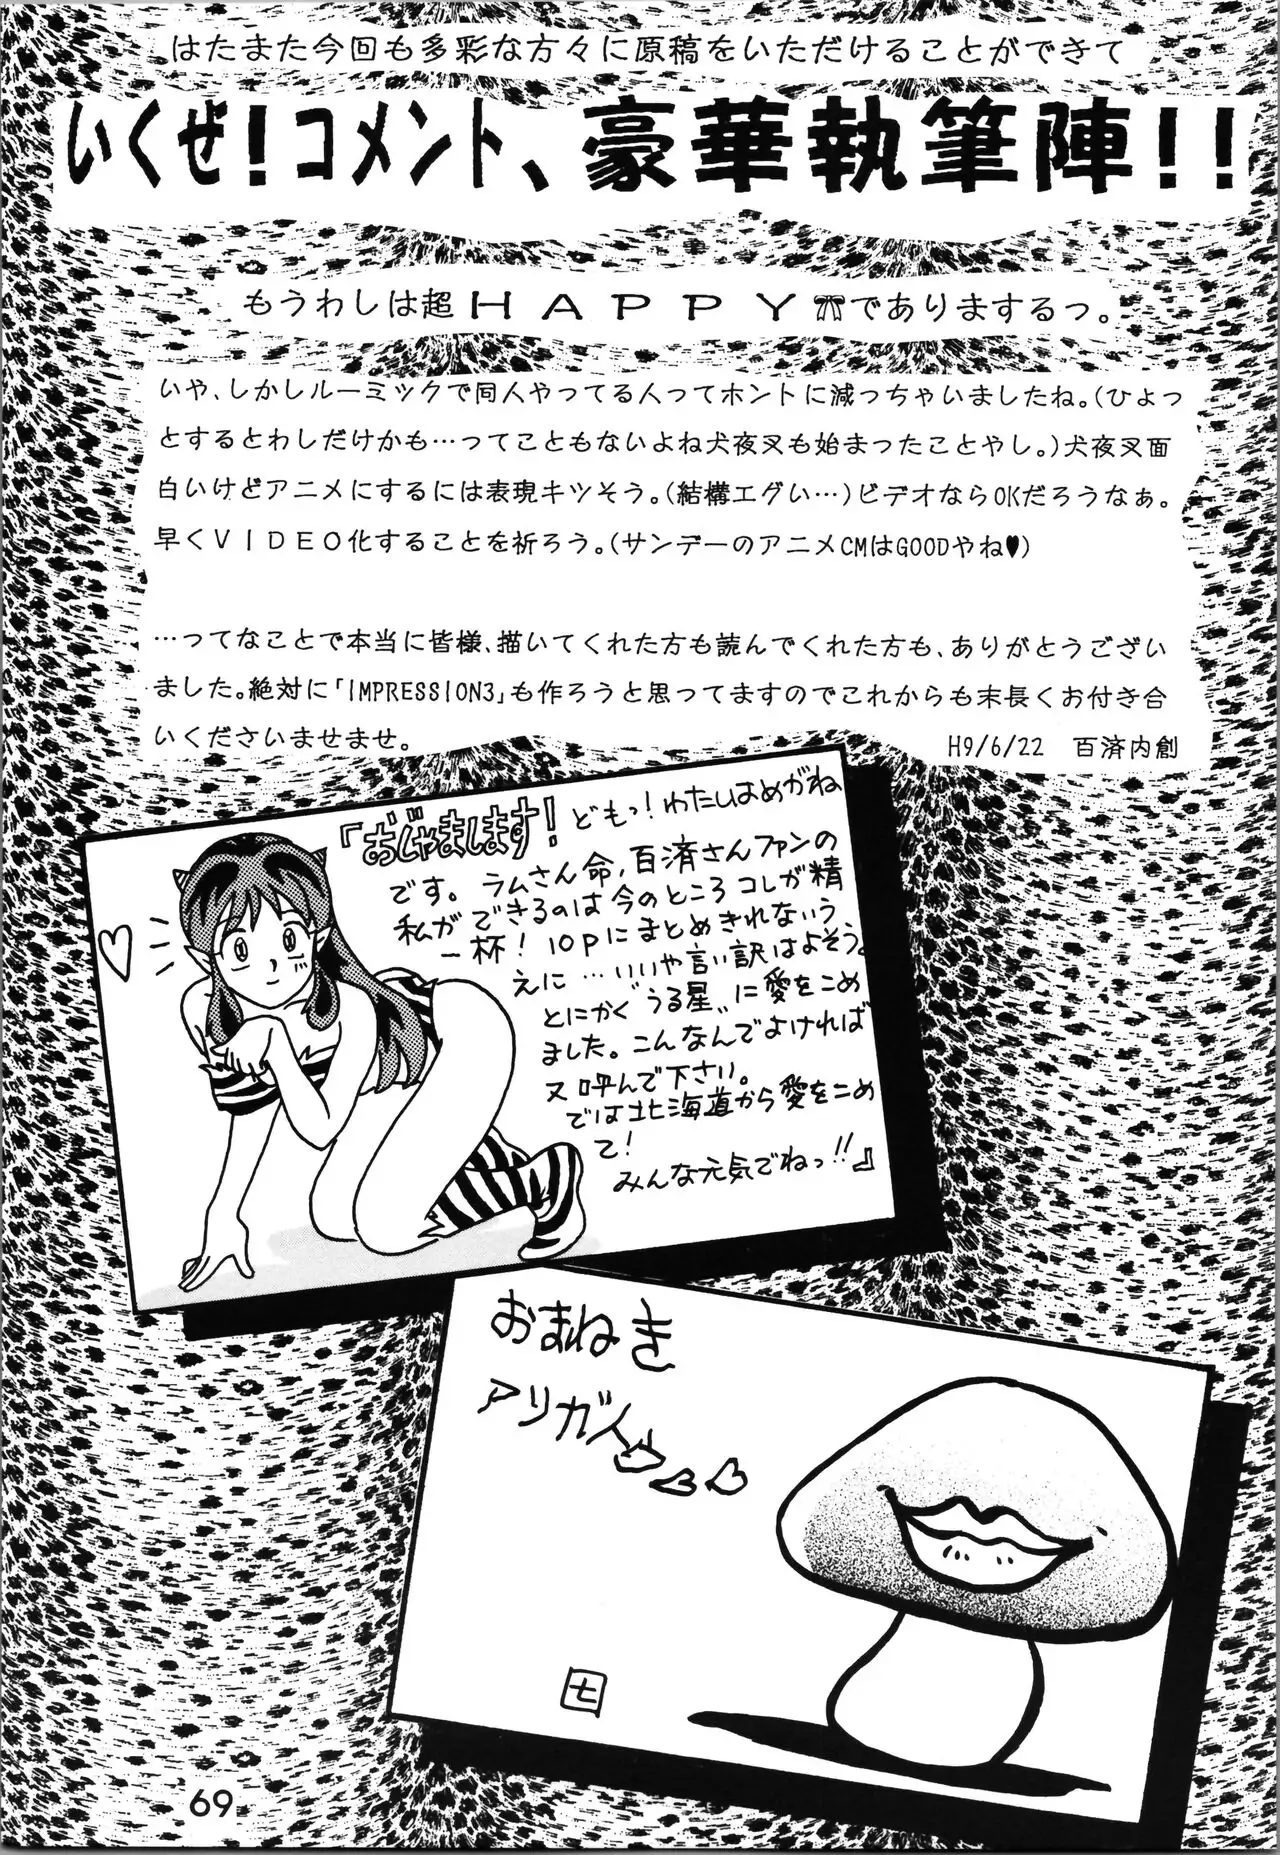 はたまた今回も多彩な方々に原稿をいただけることができて
いくぜ!コメント、豪華執筆陣!!
もうわしは超HAPPYでありまするっ。
いや、しかしルーミックで同人やってる人ってホントに減っちゃいましたね。(ひょっ
とするとわしだけかも…ってこともないよね犬夜叉も始まったことやし。)犬夜叉面
白いけどアニメにするには表現キツそう。(結構エグい…)ビデオならOKだろうなぁ。
早くVIDEO化することを祈ろう。(サンデーのアニメCMはGOODやね♥)
…ってなことで本当に皆様、描いてくれた方も読んでくれた方も、ありがとうござい
ました。絶対に「IMPRESSION3」も作ろうと思ってますのでこれからも末長くお付き合
いくださいませませ。
H9/6/22 百済内創
『おじゃまします! どもっ!わたしはめがね
です。ラムさん命,百済さんファンの
私ができるのは今のところコレが精
一杯!10Pにまとめきれないう
えに…いいや言い訳はよそう。
とにかく〝うる星〟に愛をこめ
ました。こんなんでよければ
又呼んで下さい。
では北海道から愛をこめ
て!
みんな元気でねっ!!』
おまねき
アリガトウ
七
69